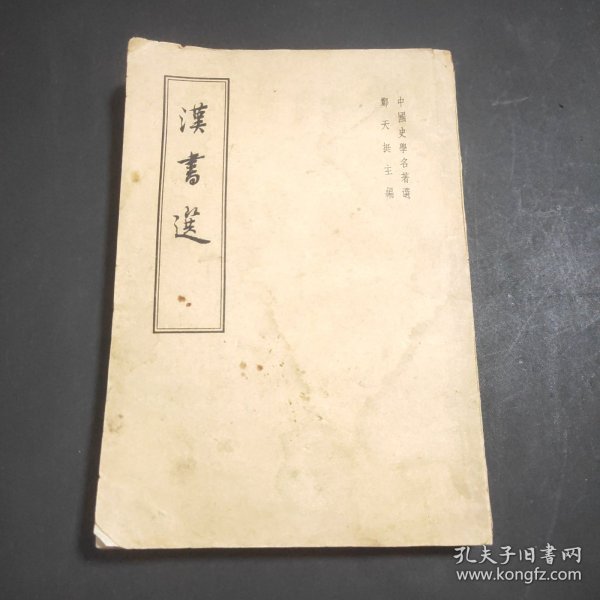 中國史學名著選
鄭天挺主編
漢書選
孔夫子旧書网
www.kongfz.com